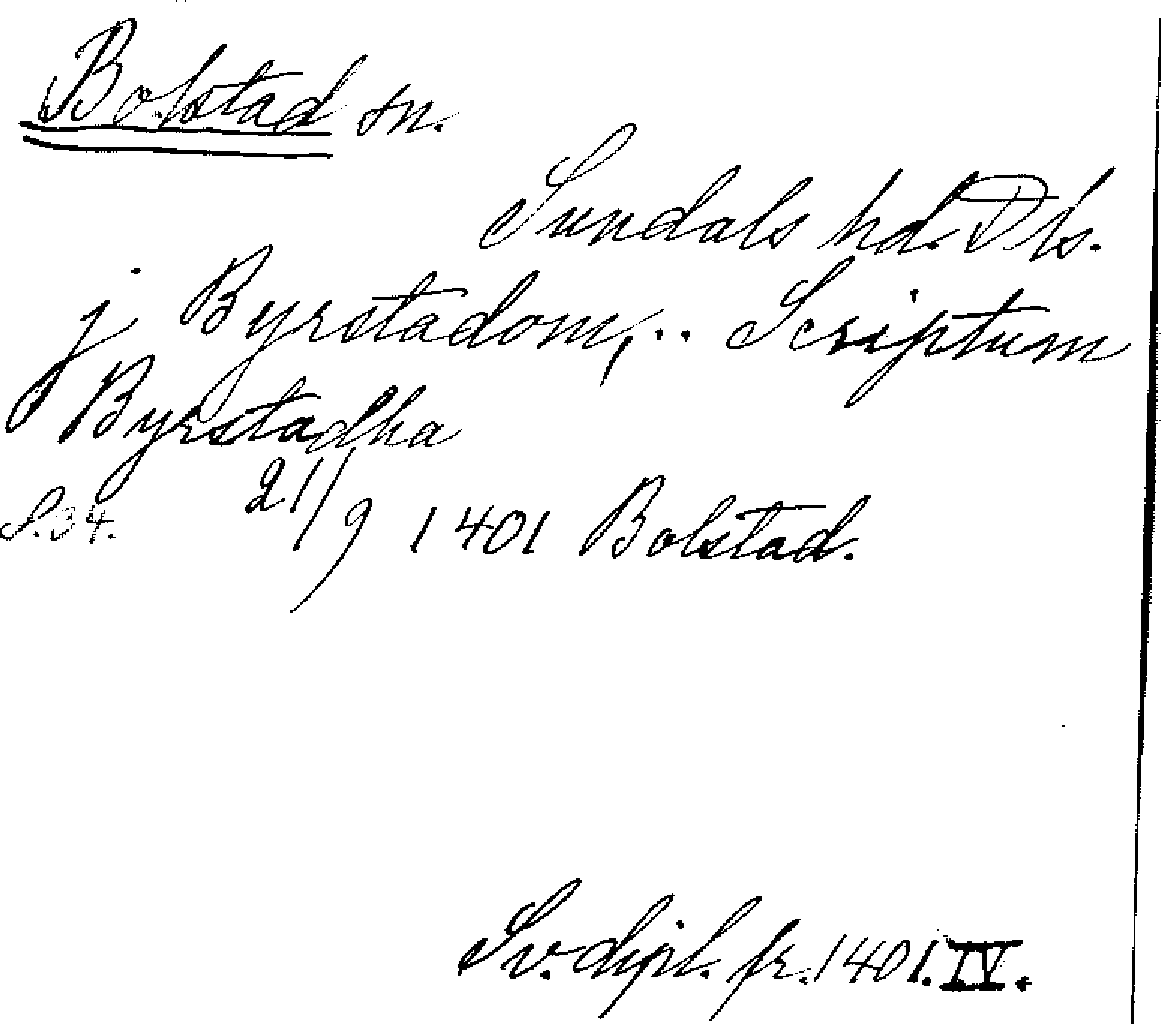 Bolstad sn.
Sundals hd. Dls.
j Byrstadom, .. Scriptum
Byrstadha
S. 34. 21/9 1401 Bolstad.
Sv. dipl. fr. 1401. IV.